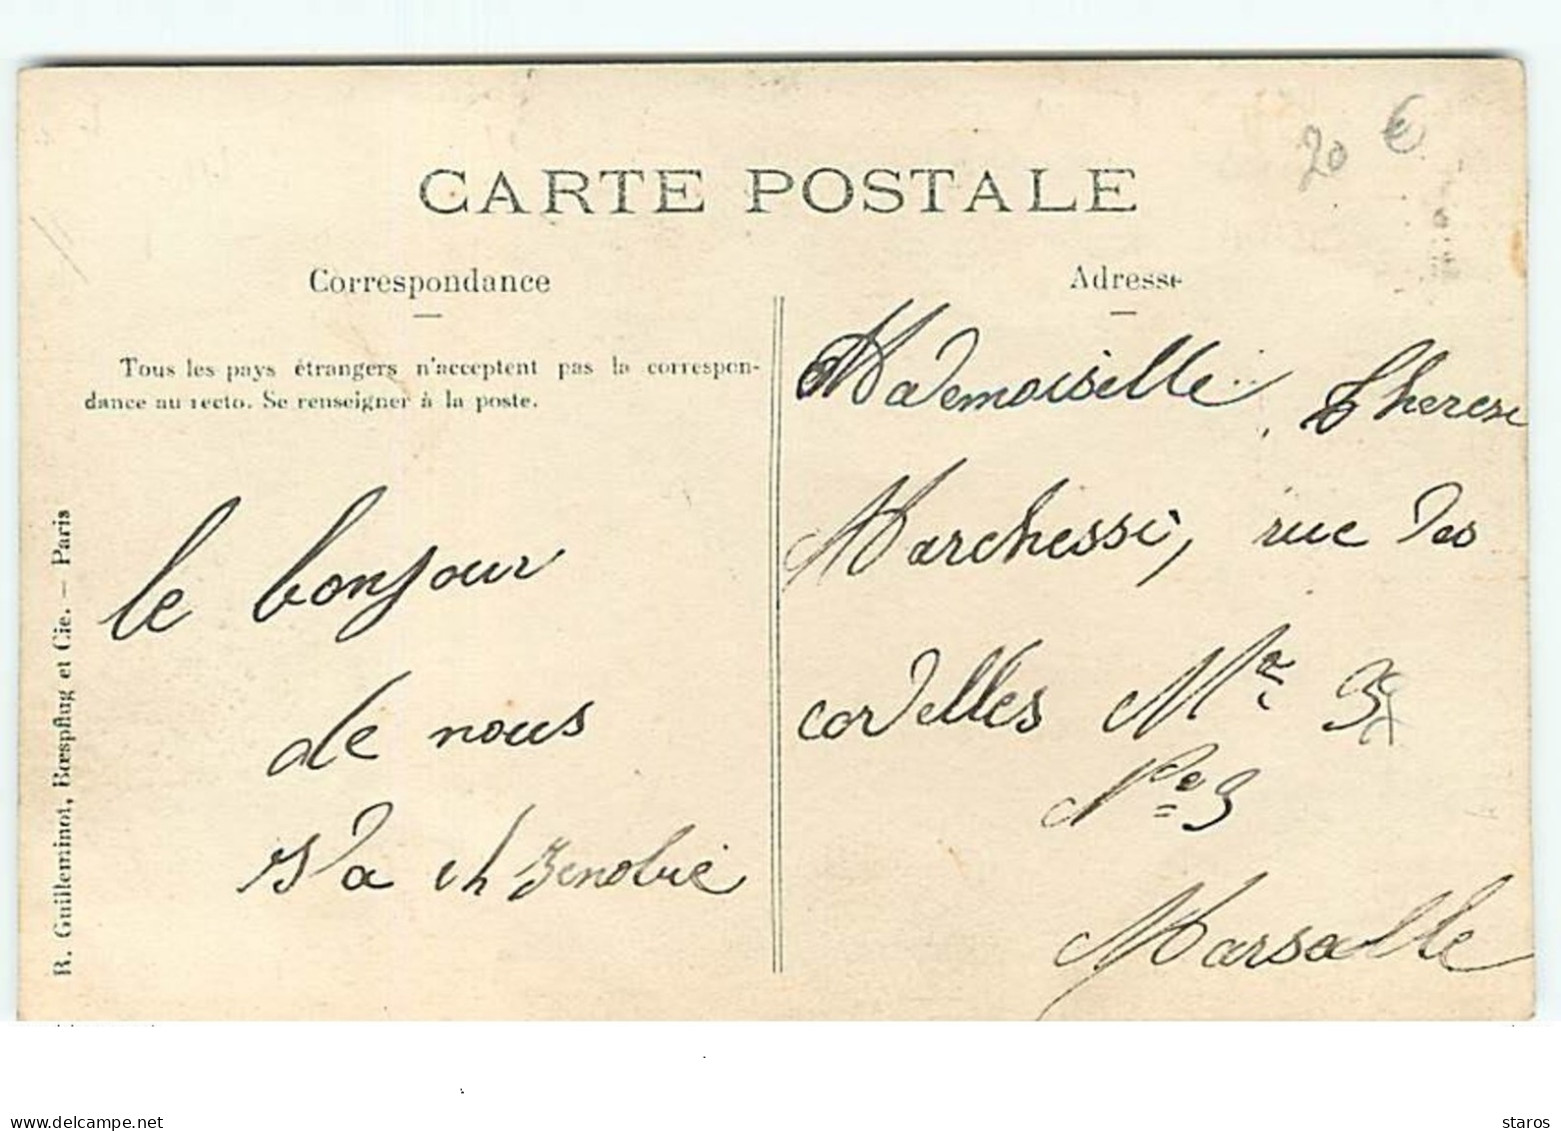 20 €
CARTE POSTALE
Correspondance
Adresse
Tous les pays étrangers n'acceptent pas la correspon-
dance au recto. Se renseigner à la poste.
R. Guilleminot, Bœspflug et Cie. — Paris
le bonjour
de nous
Zenobie
Mademoiselle Therese
Marchessi, rue des
cordelles Nº 3
Nº 3
Marsalle
www.delcampe.net
staros